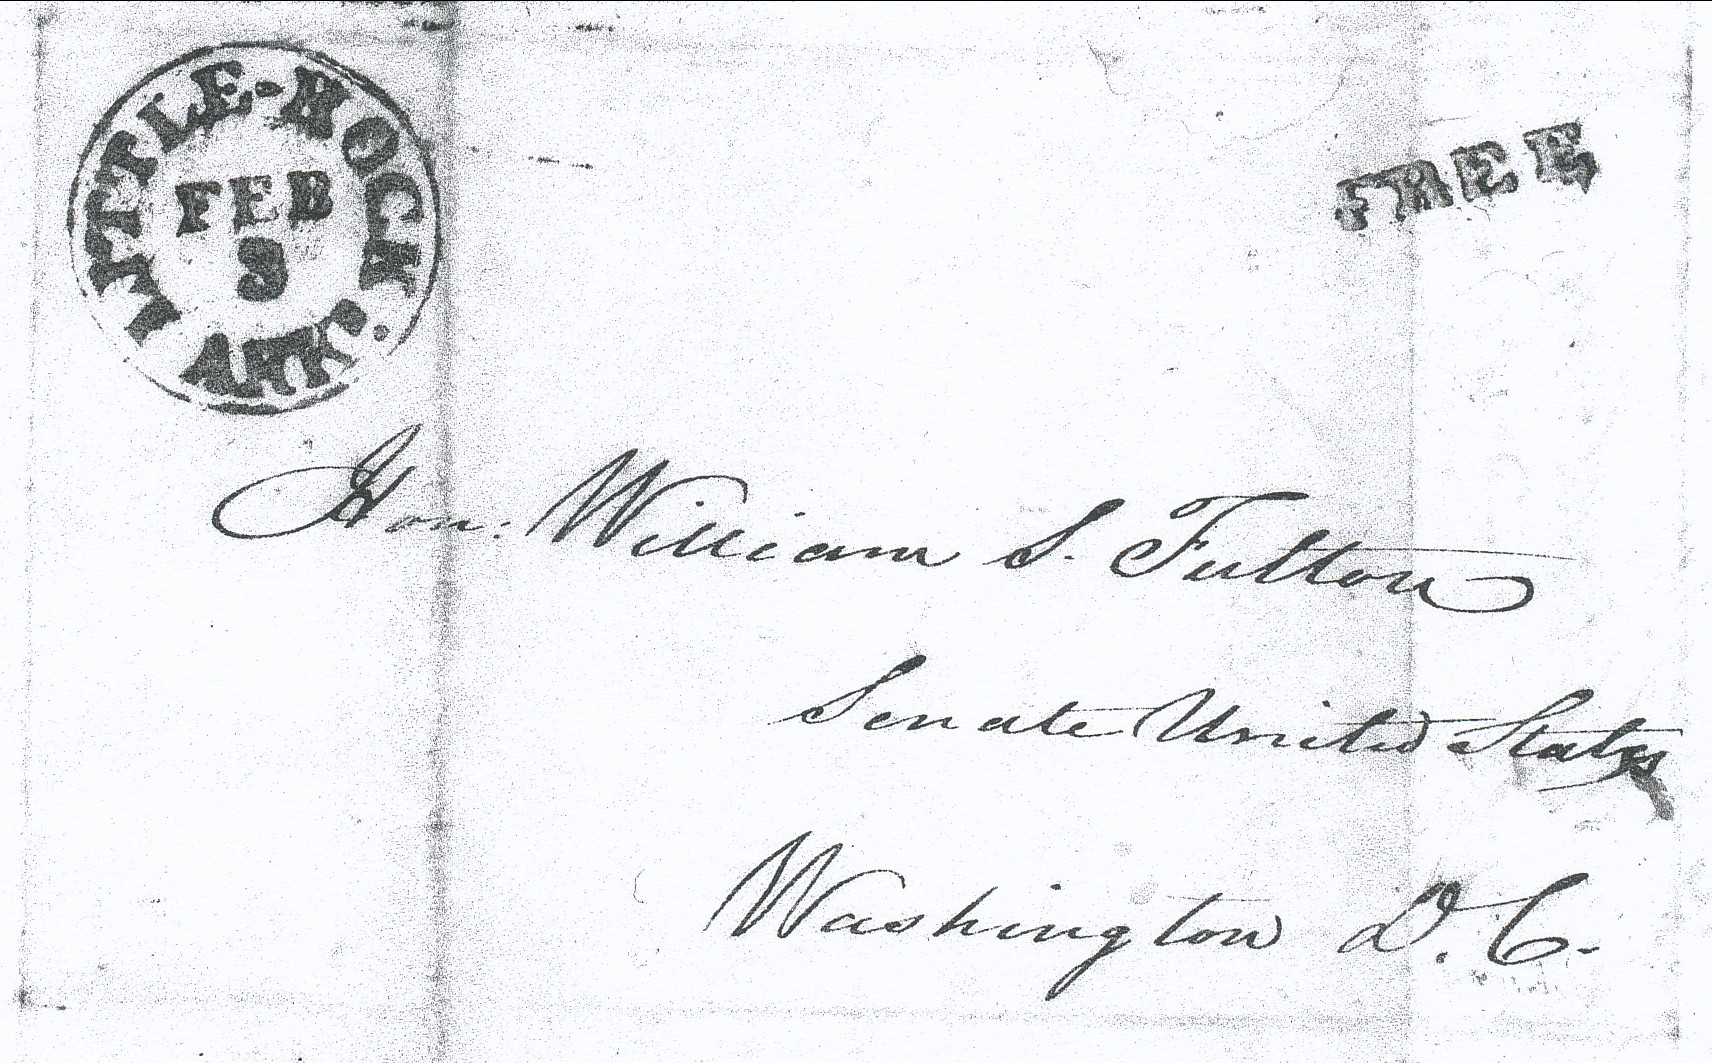 LITTLE-ROCK
FEB
3
ARKS.
FREE
Hon: William S. Fulton
Senate United States
Washington D. C.